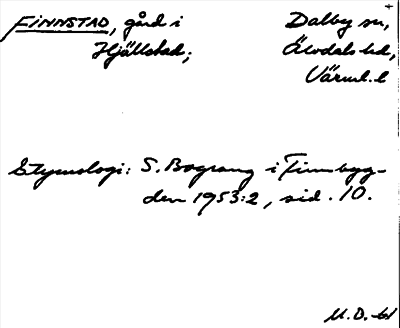 FINNSTAD, gård i Dalby sn,
Hjällstad; Älvdals hd,
Värml. l
Etymologi: S. Bograng i Finnbyg-
den 1953:2, sid. 10.
M.D. -61